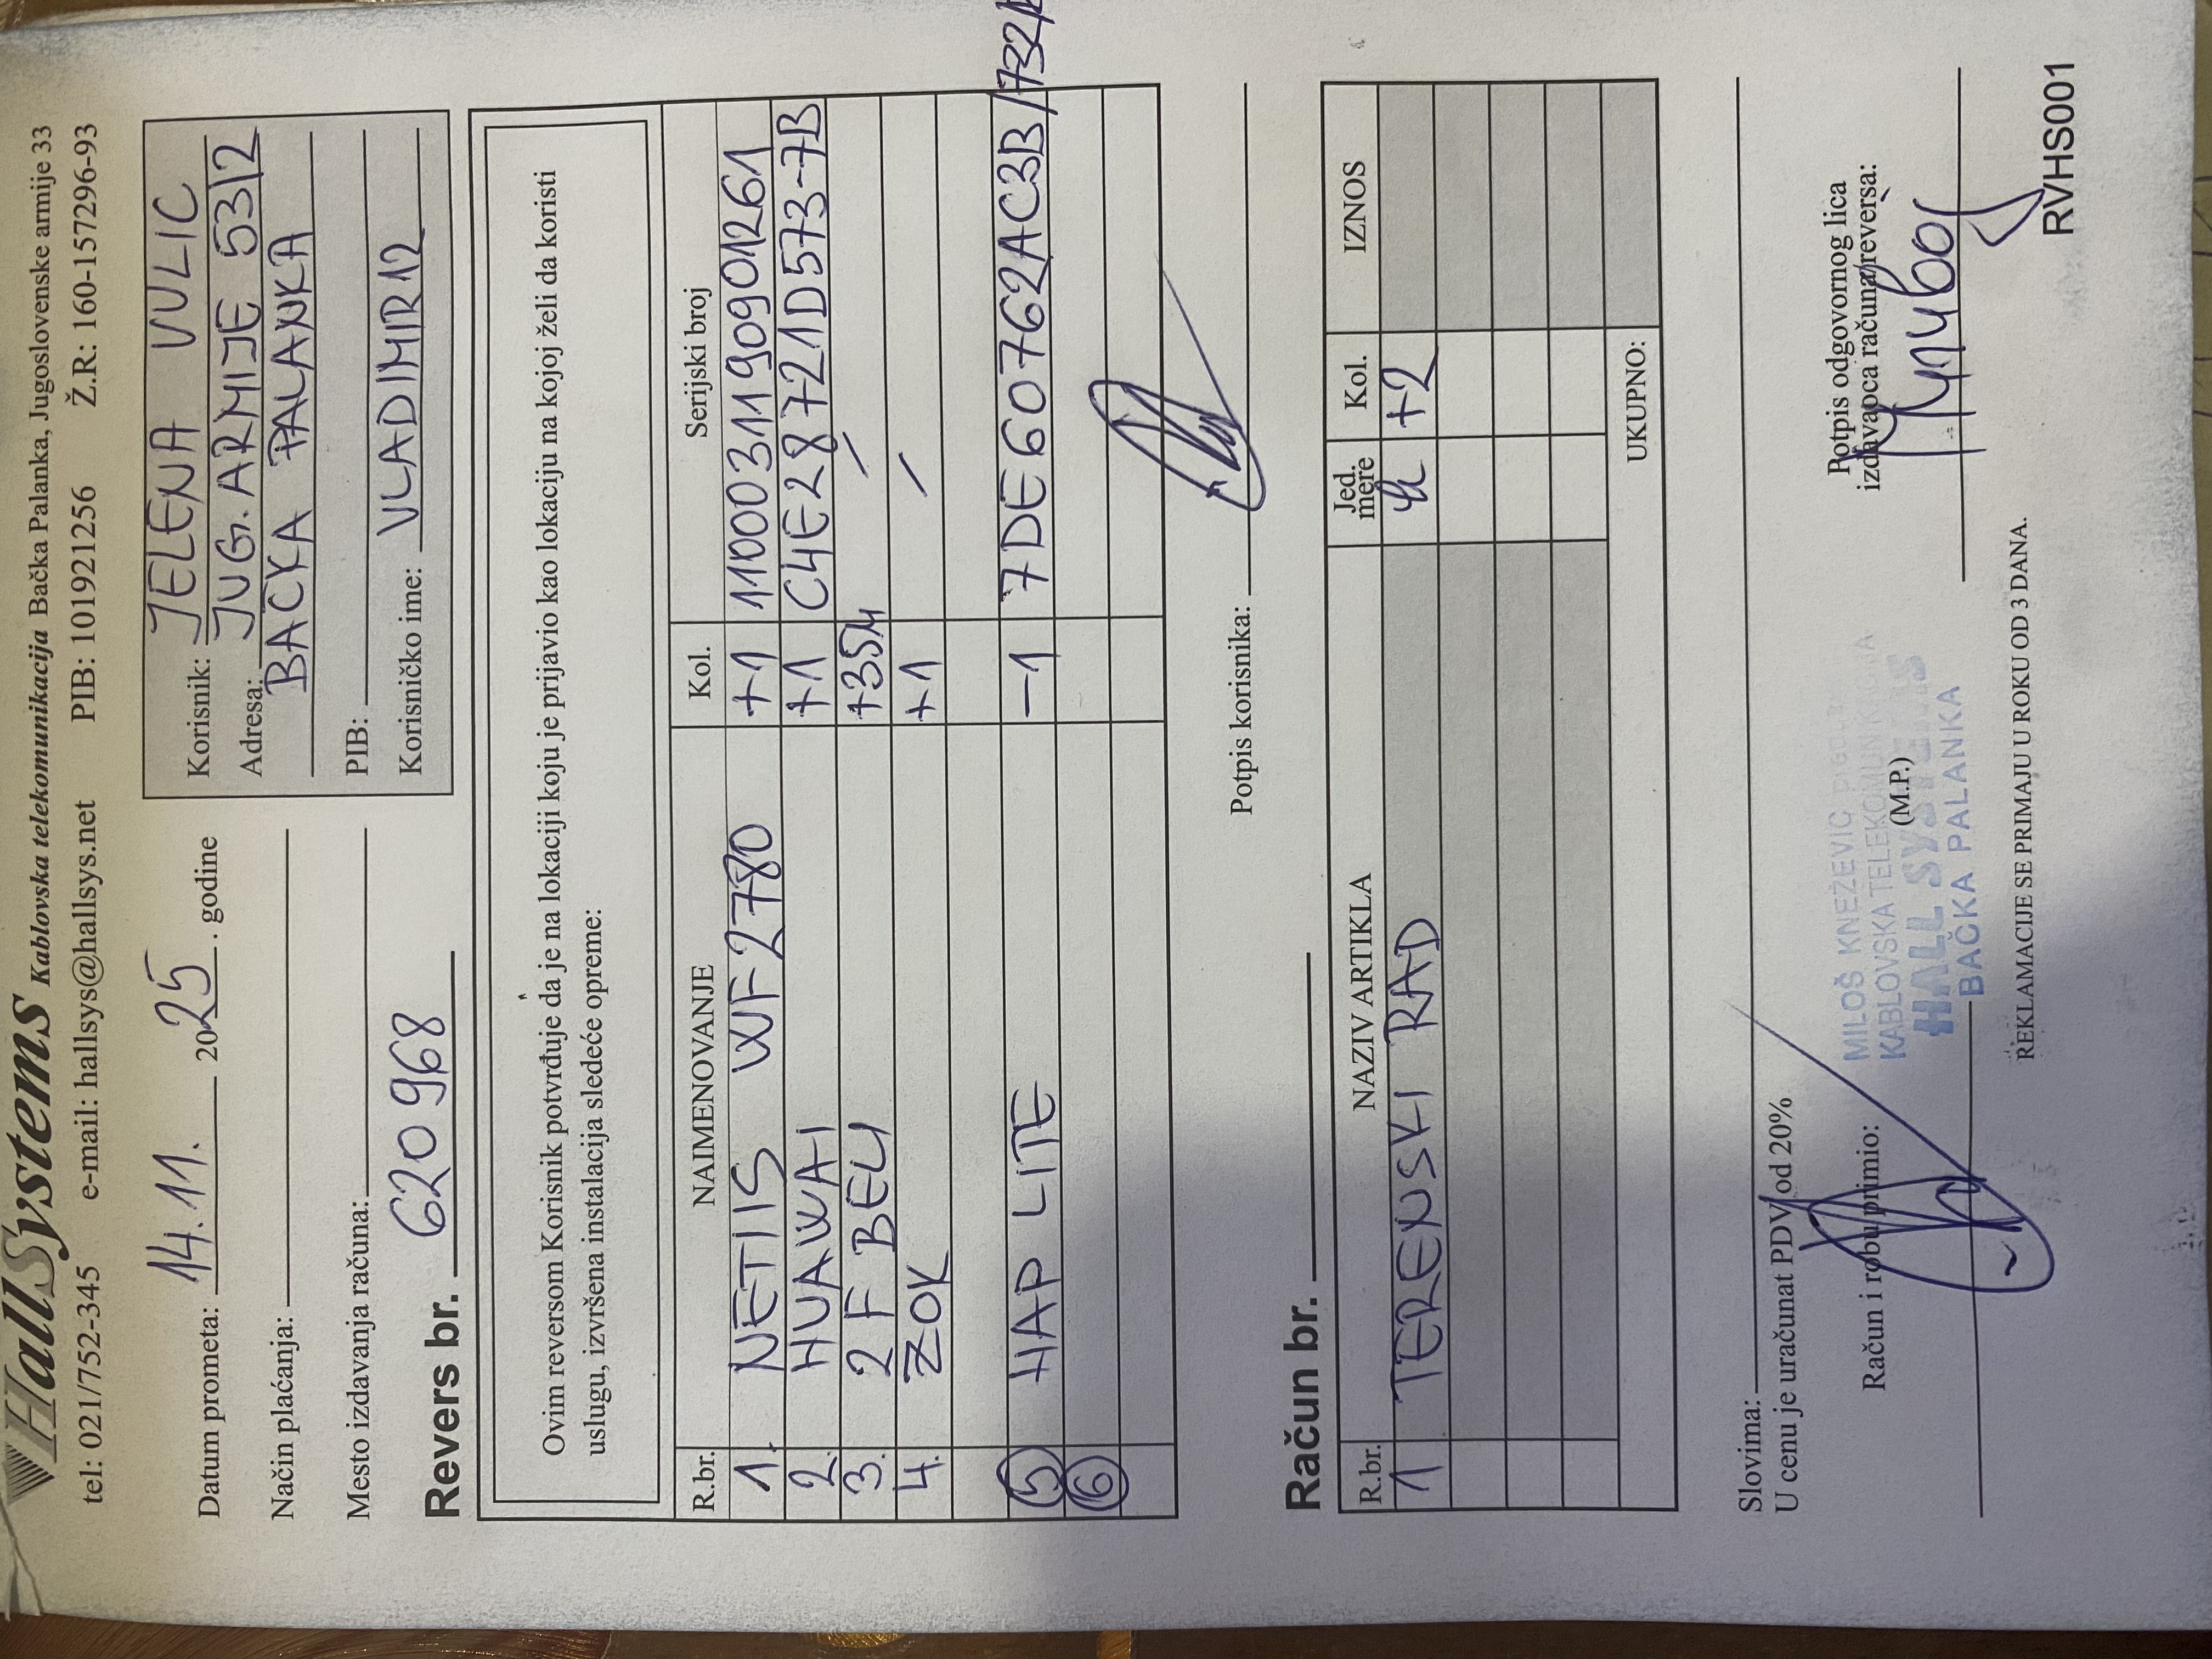 HallSystems Kablovska telekomunikacija Bačka Palanka, Jugoslovenske armije 33
tel: 021/752-345 e-mail: hallsys@hallsys.net PIB: 101921256 Ž.R: 160-157296-93
Datum prometa: 14.11. 2025. godine
Način plaćanja:
Mesto izdavanja računa:
Korisnik: JELENA VULIC
Adresa: JUG. ARMIJE 53/2
BAČKA PALANKA
PIB:
Korisničko ime: VLADIMIR12
Revers br. 620968
Ovim reversom Korisnik potvrđuje da je na lokaciji koju je prijavio kao lokaciju na kojoj želi da koristi
uslugu, izvršena instalacija sledeće opreme:
R.br. NAIMENOVANJE Kol. Serijski broj
1. NETIS WF2780 +1 1100031190901261
2. HUAWAI +1 C4E28721D573-7B
3. 2F BELI +35M /
4. ZOK +1 /
5 HAP LITE -1 7DE60762AC3B/732/
6
Potpis korisnika:
Račun br.
R.br. NAZIV ARTIKLA Jed. mere Kol. IZNOS
1 TERENSKI RAD h +2
UKUPNO:
Slovima:
U cenu je uračunat PDV od 20%
Račun i robu primio:
Potpis odgovornog lica
izdavaoca računa/reversa:
MILOŠ KNEŽEVIĆ
KABLOVSKA TELEKOMUNIKACIJA
HALL SYSTEMS
BAČKA PALANKA
(M.P.)
REKLAMACIJE SE PRIMAJU U ROKU OD 3 DANA.
RVHS001